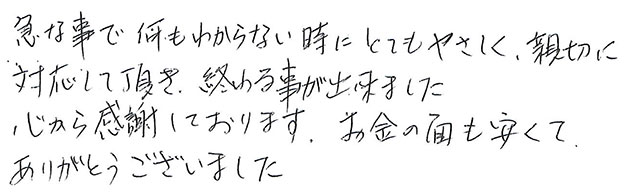 急な事で何もわからない時にとてもやさしく、親切に
対応して頂き、終わる事が出来ました
心から感謝しております。お金の面も安くて、
ありがとうございました